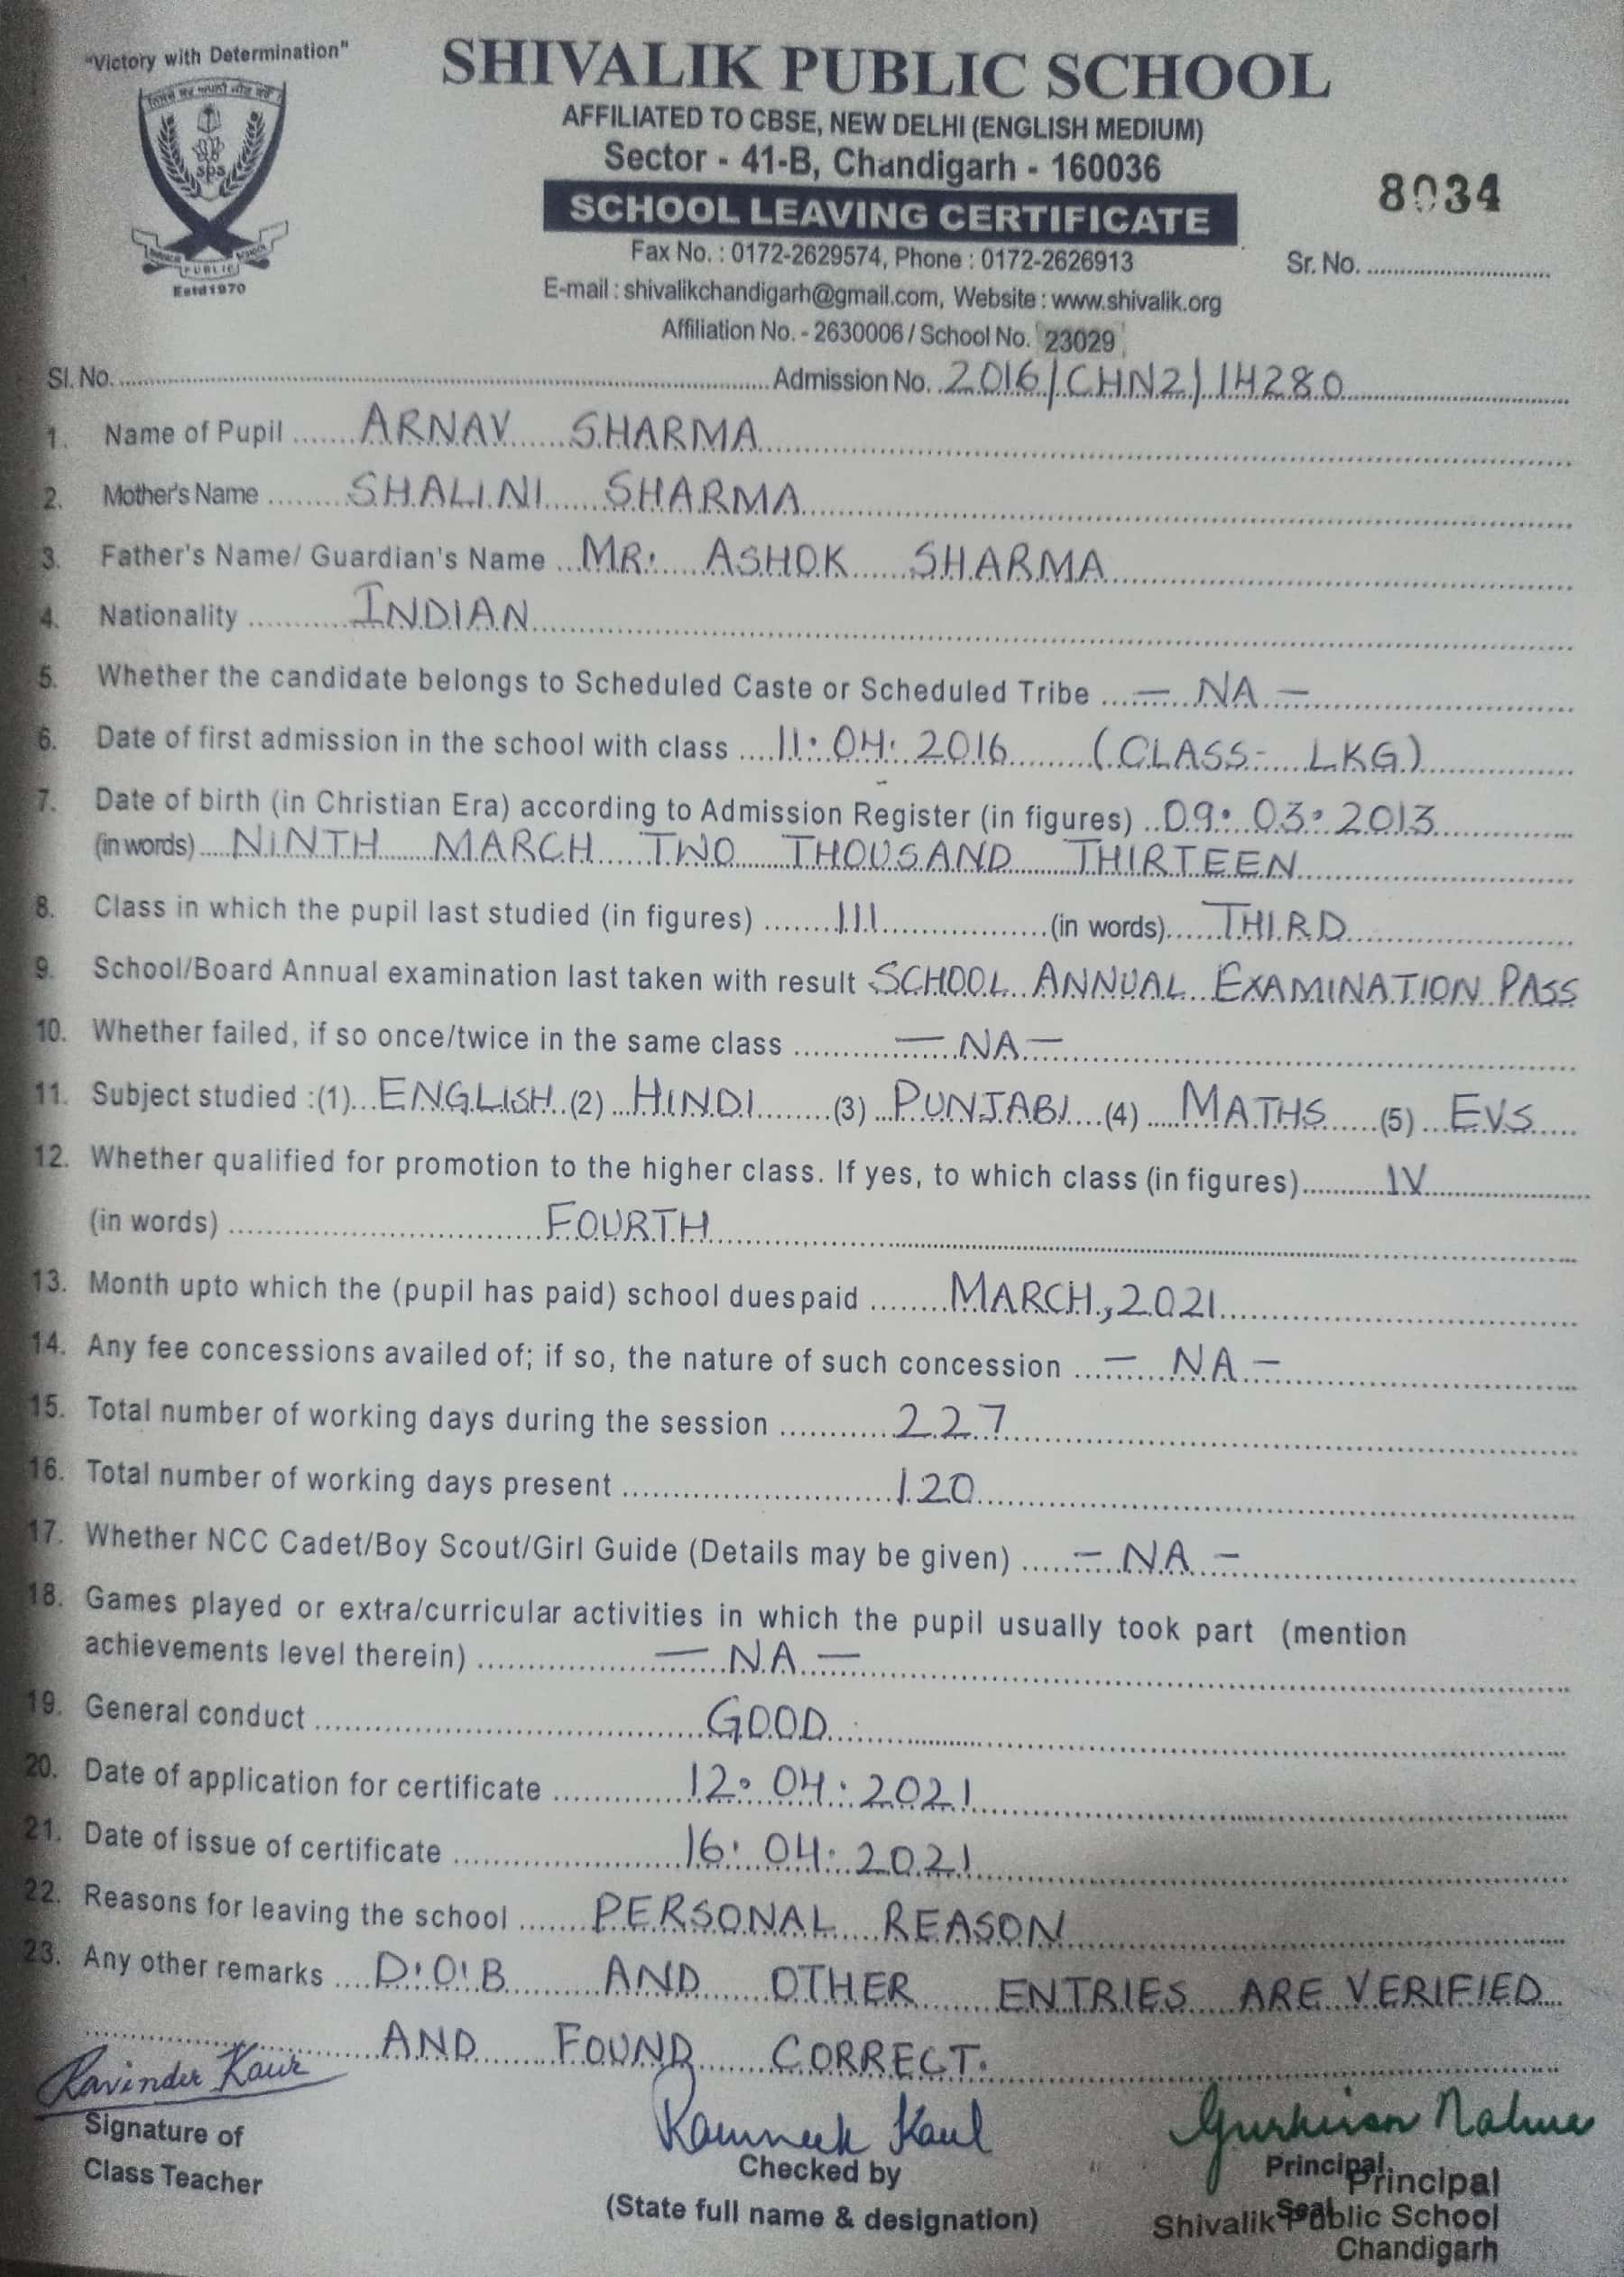 "Victory with Determination"
SHIVALIK PUBLIC SCHOOL
AFFILIATED TO CBSE, NEW DELHI (ENGLISH MEDIUM)
Sector - 41-B, Chandigarh - 160036
SCHOOL LEAVING CERTIFICATE
8034
Fax No. : 0172-2629574, Phone : 0172-2626913
Sr. No.
E-mail : shivalikchandigarh@gmail.com, Website : www.shivalik.org
Affiliation No. - 2630006 / School No. 23029
sps
PUBLIC
Estd 1970
Sl. No. Admission No. 2016/CHN2/14280
1. Name of Pupil ARNAV SHARMA
2. Mother's Name SHALINI SHARMA
3. Father's Name/ Guardian's Name MR. ASHOK SHARMA
4. Nationality INDIAN
5. Whether the candidate belongs to Scheduled Caste or Scheduled Tribe — NA —
6. Date of first admission in the school with class 11. 04. 2016 (CLASS- LKG)
7. Date of birth (in Christian Era) according to Admission Register (in figures) 09. 03. 2013
(in words) NINTH MARCH TWO THOUSAND THIRTEEN
8. Class in which the pupil last studied (in figures) III (in words) THIRD
9. School/Board Annual examination last taken with result SCHOOL ANNUAL EXAMINATION PASS
10. Whether failed, if so once/twice in the same class — NA —
11. Subject studied :(1) ENGLISH (2) HINDI (3) PUNJABI (4) MATHS (5) EVS
12. Whether qualified for promotion to the higher class. If yes, to which class (in figures) IV
(in words) FOURTH
13. Month upto which the (pupil has paid) school duespaid MARCH, 2021
14. Any fee concessions availed of; if so, the nature of such concession — NA —
15. Total number of working days during the session 227
16. Total number of working days present 120
17. Whether NCC Cadet/Boy Scout/Girl Guide (Details may be given) — NA —
18. Games played or extra/curricular activities in which the pupil usually took part (mention
achievements level therein) — NA —
19. General conduct GOOD
20. Date of application for certificate 12. 04. 2021
21. Date of issue of certificate 16. 04. 2021
22. Reasons for leaving the school PERSONAL REASON
23. Any other remarks D.O.B AND OTHER ENTRIES ARE VERIFIED
AND FOUND CORRECT.
Ravinder Kaur
Signature of
Class Teacher
Ramneek Kaul
Checked by
(State full name & designation)
Principal
Seal
Principal
Shivalik Public School
Chandigarh